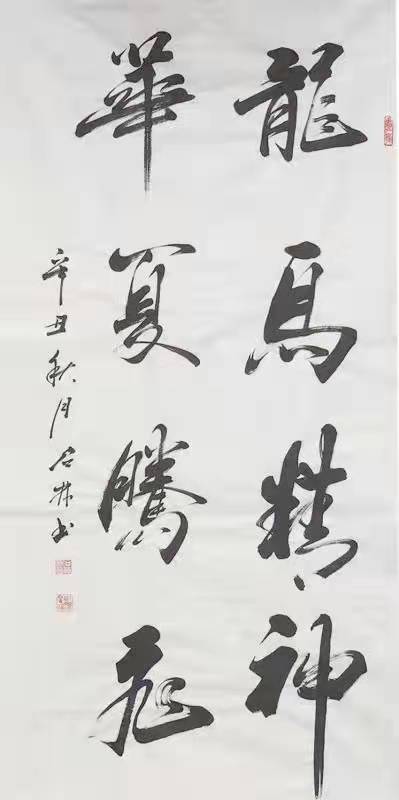 龍馬精神
華夏騰飛
辛丑秋月石林书